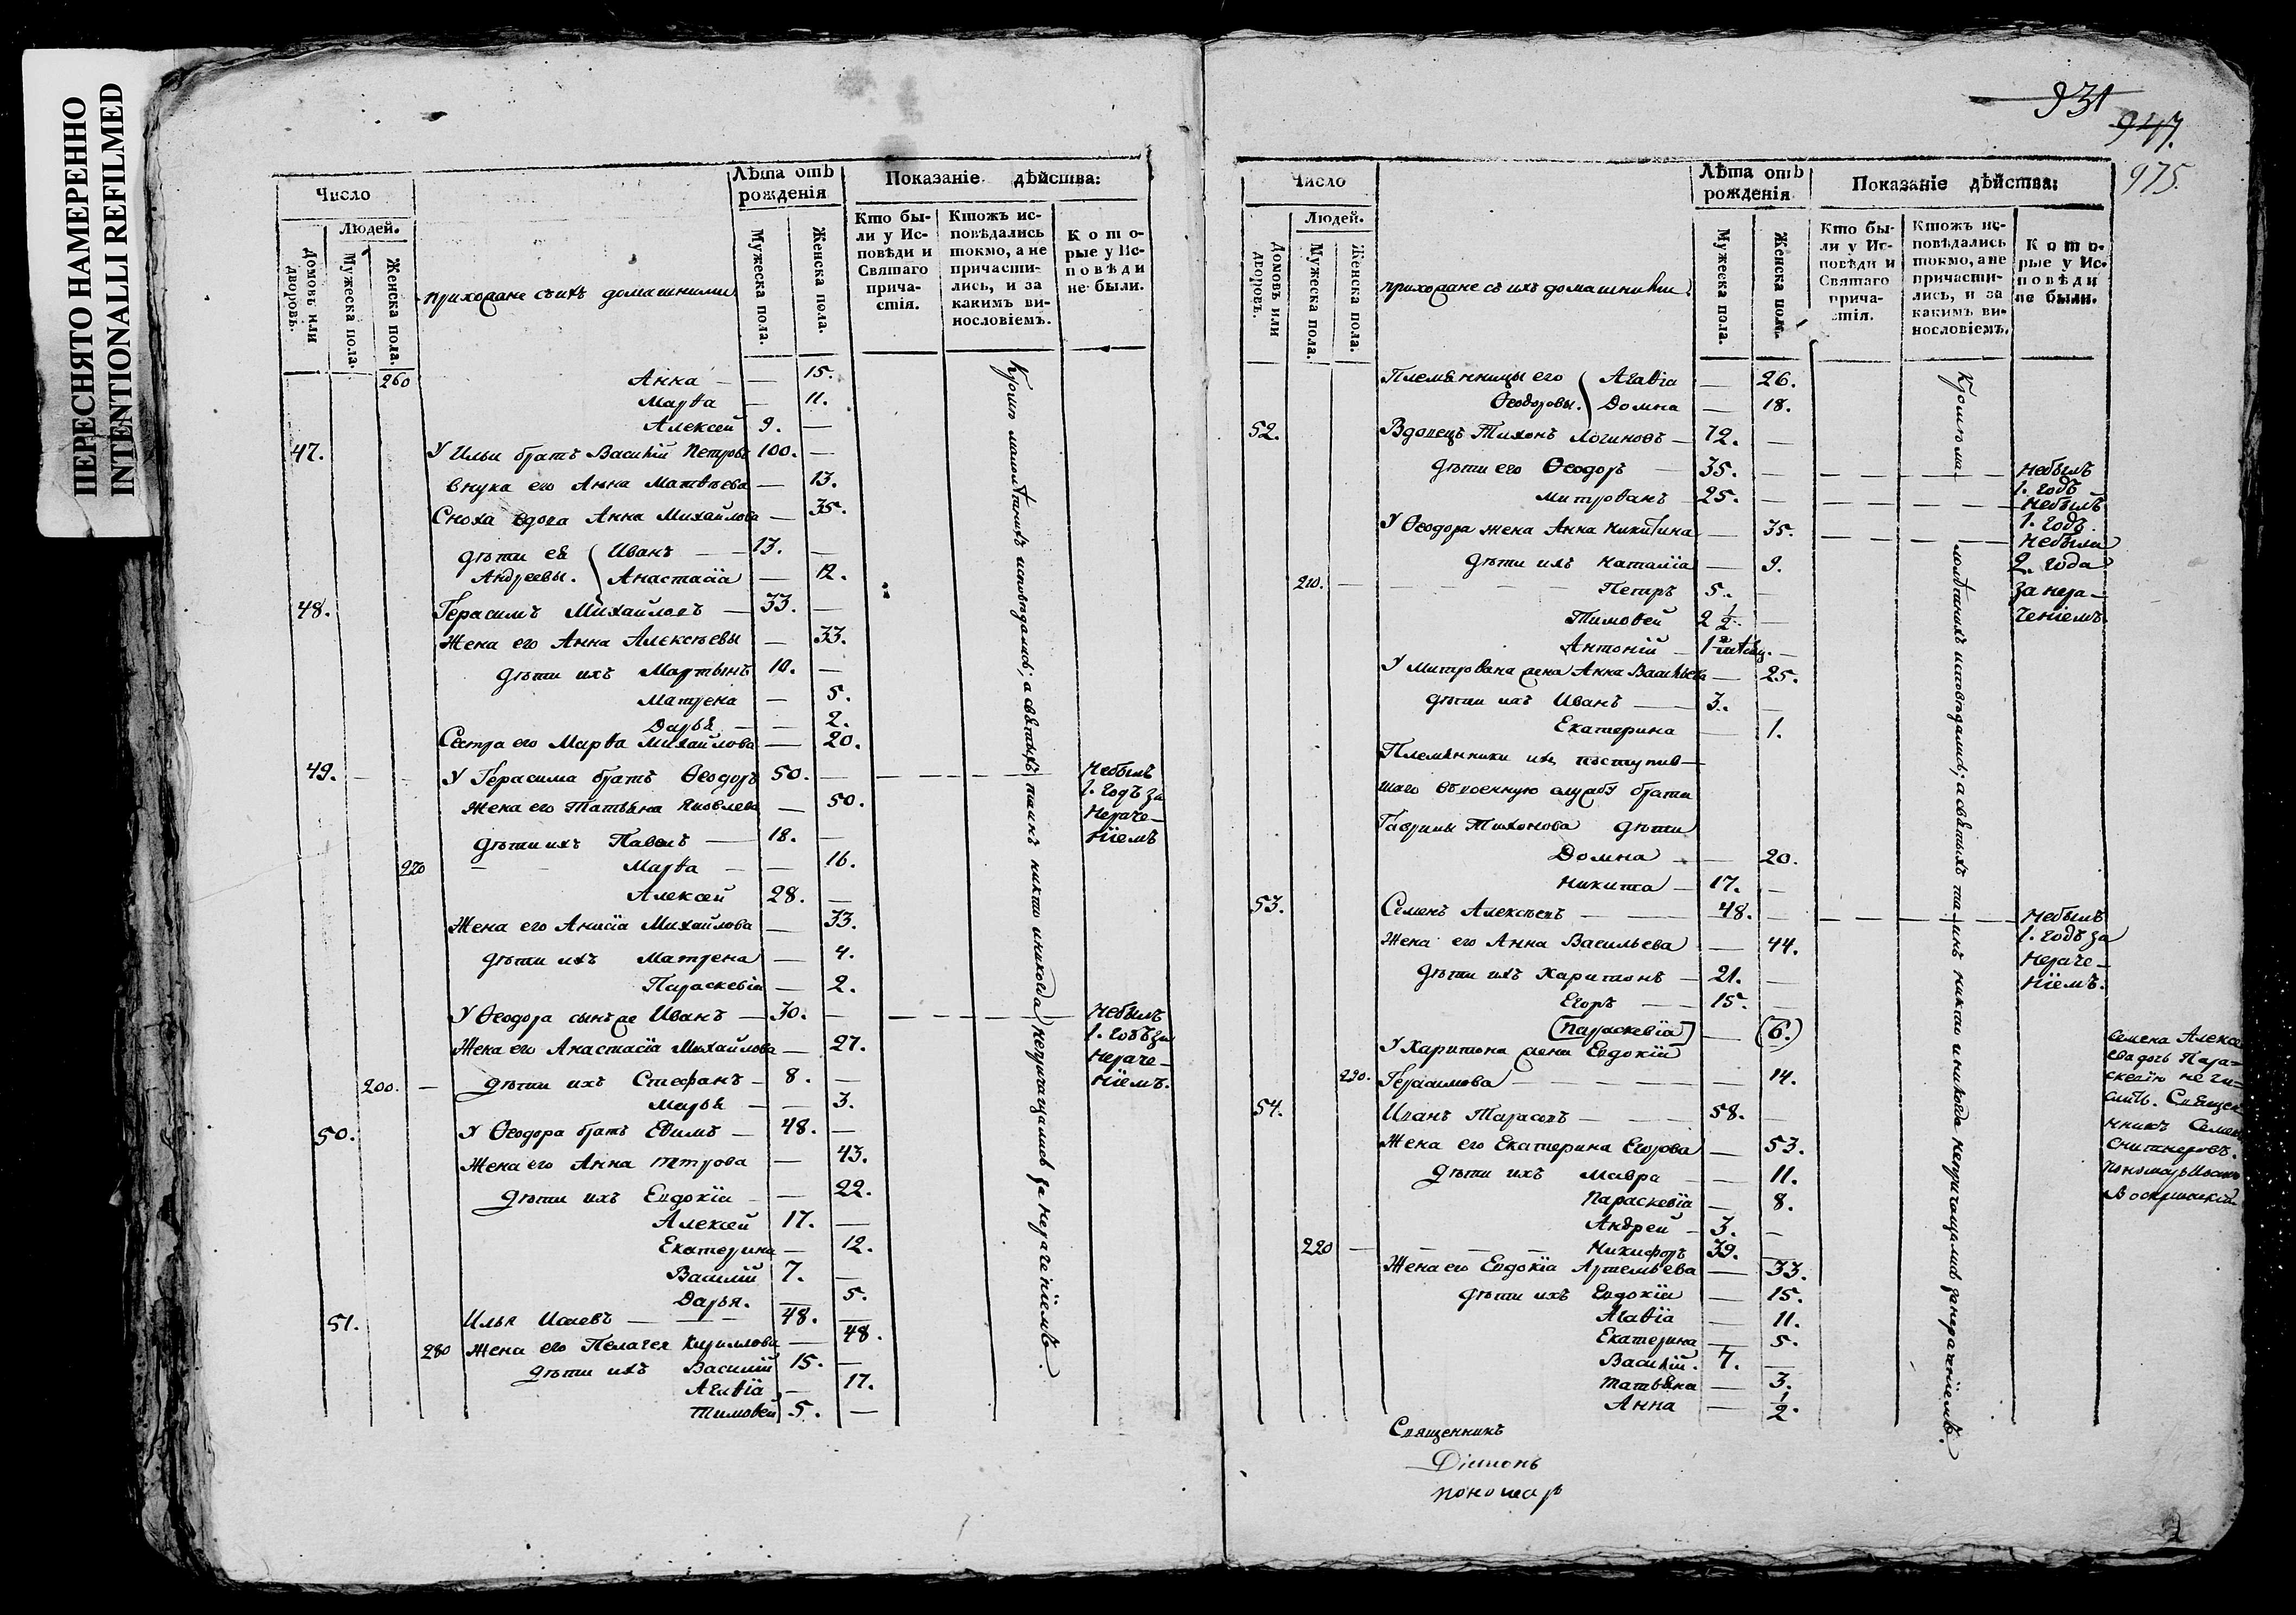 ПЕРЕСНЯТО НАМЕРЕННО
INTENTIONALLI REFILMED
Число
Людей.
Домовъ или дворовъ.
Мужеска пола.
Женска пола.
прихожане съ ихъ домашними
Лѣта отъ рожденія
Мужеска пола.
Женска пола.
Показаніе дѣйства:
Кто бы-
ли у Ис-
повѣди и
Святаго
прича-
стія.
Ктожъ ис-
повѣдались
токмо, а не
причасти-
лись, и за
какимъ ви-
нословіемъ.
К о т о-
рые у Ис-
п о в ѣ д и
не были.
260 Анна — 15.
Марѳа — 11.
Алексей 9. —
47. У Ильи братъ Василій Петровъ 100. —
внука его Анна Матвѣева — 13.
Сноха вдова Анна Михайлова — 35.
дѣти ея Иванъ — 13. —
Андреевы. Анастасіа — 12.
48. Герасимъ Михайловъ — 33. —
Жена его Анна Алексѣевы — 33.
дѣти ихъ Мартынъ 10. —
Матрена — 5.
Дарья — 2.
Сестра его Марѳа Михайлова — 20.
49. У Герасима братъ Ѳеодоръ 50. — небылъ
1. годъ за
нераче-
ніемъ
Жена его Татьяна Яковлева — 50.
дѣти ихъ Павелъ — 18. —
270 Марѳа — 16.
Алексей 28. —
Жена его Анисіа Михайлова — 33.
дѣти ихъ Матрена — 4.
Параскевіа — 2.
У Ѳеодора сынъ же Иванъ — 30. — небылъ
1. годъ за
нераче-
ніемъ.
Жена его Анастасіа Михайлова — 27.
200. — дѣти ихъ Стефанъ — 8. —
Марья — 3.
50. У Ѳеодора братъ Евимъ — 48. —
Жена его Анна Петрова — 43.
дѣти ихъ Евдокіа — 22.
Алексей 17. —
Екатерина — 12.
Василій 7. —
Дарья. — 5.
51. Илья Исаевъ — 48. —
280 Жена его Пелагея Кирилова — 48.
дѣти ихъ Василій 15. —
Агаѳіа — 17.
Тимоѳей 5. —
Кромѣ малолѣтнихъ исповѣдались; а святыхъ таинъ никто никогда непричащались за нераченіемъ.
931
947.
975.
Число
Людей.
Домовъ или дворовъ.
Мужеска пола.
Женска пола.
прихожане съ ихъ домашними.
Лѣта отъ рожденія
Мужеска пола.
Женска пола.
Показаніе дѣйства:
Кто бы-
ли у Ис-
повѣди и
Святаго
прича-
стія.
Ктожъ ис-
повѣдались
токмо, а не
причасти-
лись, и за
какимъ ви-
нословіемъ.
К о т о-
рые у Ис-
п о в ѣ д и
не были.
Племянницы его Агаѳіа — 26.
Ѳеодоровы. Домна — 18.
52. Вдовецъ Тихонъ Логиновъ — 72. —
дѣти его Ѳеодоръ — 35. — небылъ
1. годъ
Митрованъ — 25. — небылъ
1. годъ.
У Ѳеодора жена Анна Никитина — 35. — небыла
2. года
за нера-
ченіемъ.
дѣти ихъ Наталіа — 9.
210. — Петръ 5. —
Тимоѳей 2 1/2 —
Антоній —
У Митрована жена Анна Васильева — 25.
дѣти ихъ Иванъ — 3. —
Екатерина — 1.
Племянники ихъ поступив-
шаго въ военную службу брата
Гаврилы Тихонова дѣти
Домна — 20.
Никита — 17. —
53. Семенъ Алексѣевъ — 48. — небылъ
1. годъ за
нераче-
ніемъ.
Жена его Анна Васильева — 44.
дѣти ихъ Харитонъ — 21. —
Егоръ — 15. —
(Параскевіа) — (6.)
У Харитона жена Евдокіа
290. Герасимова — 14.
54. Иванъ Тарасовъ — 58. —
Жена его Екатерина Егорова — 53.
дѣти ихъ Мавра — 11.
Параскевіа — 8.
Андрей — 3. —
220 — Никифоръ 39. —
Жена его Евдокіа Артемьева — 33.
дѣти ихъ Евдокіа — 15.
Агаѳіа — 11.
Екатерина — 5.
Василій. 7. —
Татьяна — 3.
Анна — 1/2.
Кромѣ малолѣтнихъ исповѣдались; а святыхъ таинъ никто никогда непричащались за нераченіемъ.
Семена Алексѣ-
ева дочь Пара-
скевію не чи-
слить. Священ-
никъ Семенъ
пономарь Иванъ
Священникъ
Діаконъ
пономарь